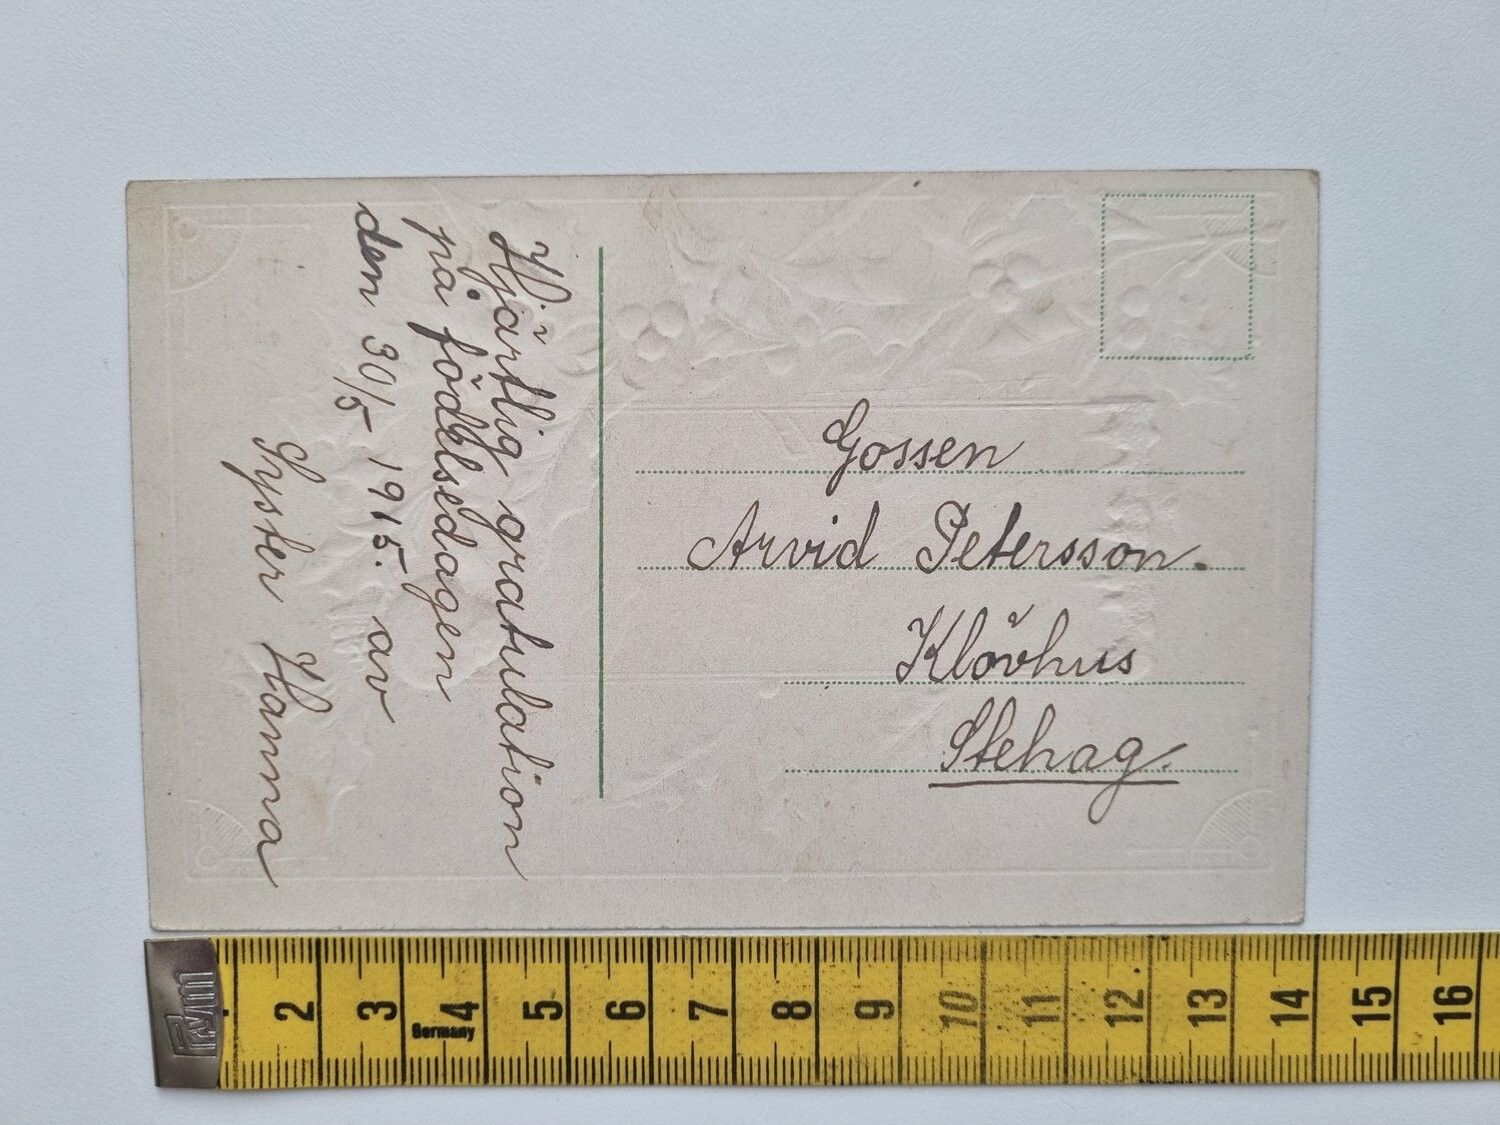 Hjärtlig gratulation
på födelsedagen
den 30/5 1915. av
Syster Hanna
Gossen
Arvid Petersson.
Klövhus
Stehag.
Prym
2 3 4 5 6 7 8 9 10 11 12 13 14 15 16
Germany